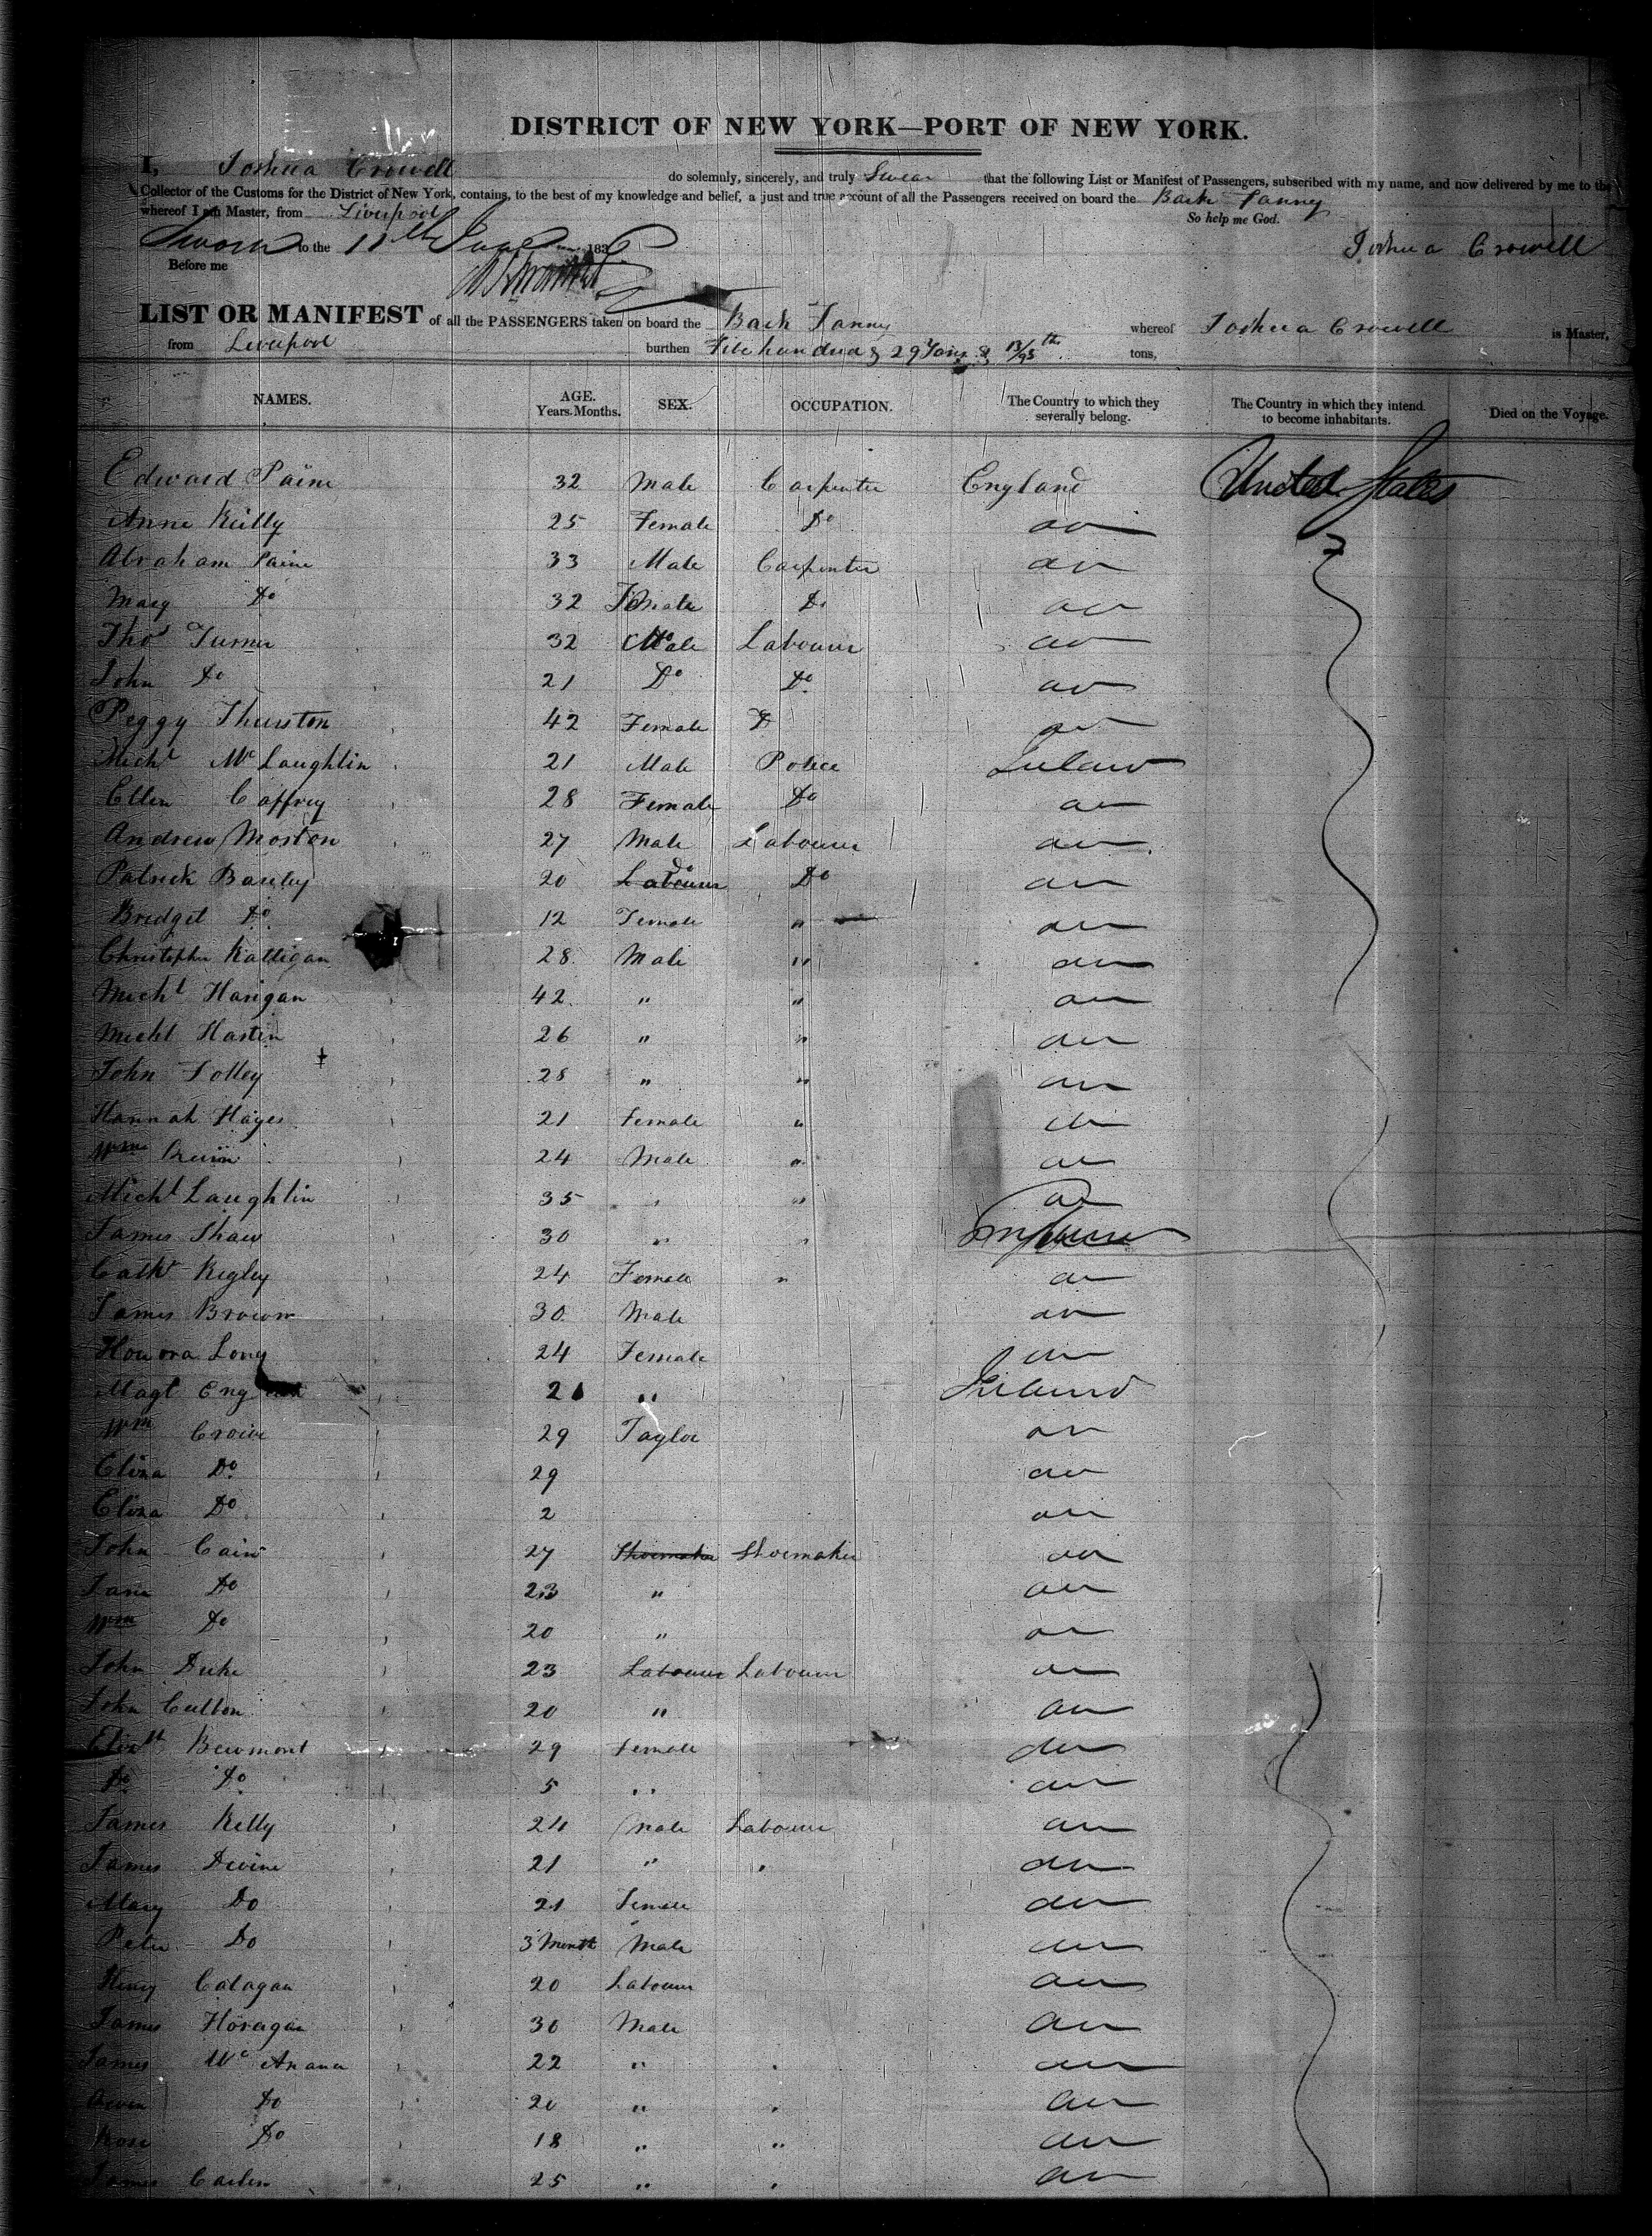 DISTRICT OF NEW YORK—PORT OF NEW YORK.
I, Joshua Crowell do solemnly, sincerely, and truly Swear that the following List or Manifest of Passengers, subscribed with my name, and now delivered by me to the
Collector of the Customs for the District of New York, contains, to the best of my knowledge and belief, a just and true account of all the Passengers received on board the Bark Fanny
whereof I am Master, from Liverpool So help me God.
Sworn to the 11th 183 Joshua Crowell
Before me
LIST OR MANIFEST of all the PASSENGERS taken on board the Bark Fanny whereof Joshua Crowell is Master,
from Liverpool burthen hundred & 29 Tons & 13/95th tons,
NAMES. AGE. Years. Months. SEX. OCCUPATION. The Country to which they severally belong. The Country in which they intend to become inhabitants. Died on the Voyage.
Edward Paine 32 Male Carpenter England United States
Anne Kelly 25 Female Do do
Abraham Paine 33 Male Carpenter do
Mary Do 32 Female Do do
Thos Turner 32 Male Labourer do
John Do 21 Do Do do
Peggy Thurston 42 Female Do do
Michl McLaughlin 21 Male Police Ireland
Ellen Caffrey 28 Female Do do
Andrew Moston 27 Male Labourer do
Patrick 20 Labourer do Do do
Bridget Do 12 Female " do
Christopher Kalligan 28 Male " do
Michl Harigan 42 " " do
Michl Hastin 26 " " do
John Tolley 28 " " do
Hannah Hayes 21 Female " do
Wm 24 Male " do
Michl Laughlin 35 " " do
James Shaw 30 " "
Cathr Kegley 24 Female " do
James Brown 30 Male do
Honora Long 24 Female do
Magt 21 " Ireland
Wm 29 Taylor do
Eliza Do 29 do
Eliza Do 2 do
John Cain 27 Shoemaker Shoemaker do
Jane Do 23 " do
Wm Do 20 " do
John Duke 23 Labourer Labourer do
John Culbon 20 " do
Elizth Bewmont 29 Female do
Do Do 5 " do
James Kelly 24 Male Labourer do
James Devine 21 " " do
Mary Do 21 Female do
Peter Do 3 Month Male do
Henry Calagan 20 Labourer do
James Horagan 30 Male do
James Mc 22 " " do
Owen Do 20 " " do
Rose Do 18 " " do
James 25 " " do